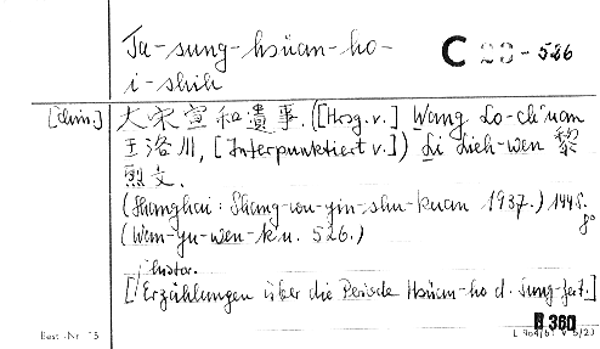 Ta-sung-hsüan-ho-
i-shih
C 23-526
[chin.] 大宋宣和遺事. ([Hrsg. v.] Wang Lo-ch'uan
王洛川, [Interpunktiert v.]) Li Lieh-wen 黎
烈文.
(Shanghai: Shang-wu-yin-shu-kuan 1937.) 144 S.
8°
(Wan-yu-wen-k'u. 526.)
histor.
[Erzählungen über die Periode Hsüan-ho d. Sung-Zeit.]
B 360
Best.-Nr. 15